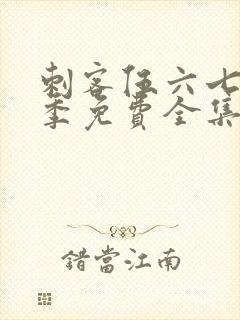 刺客伍六七
季免費全集
錯當江南